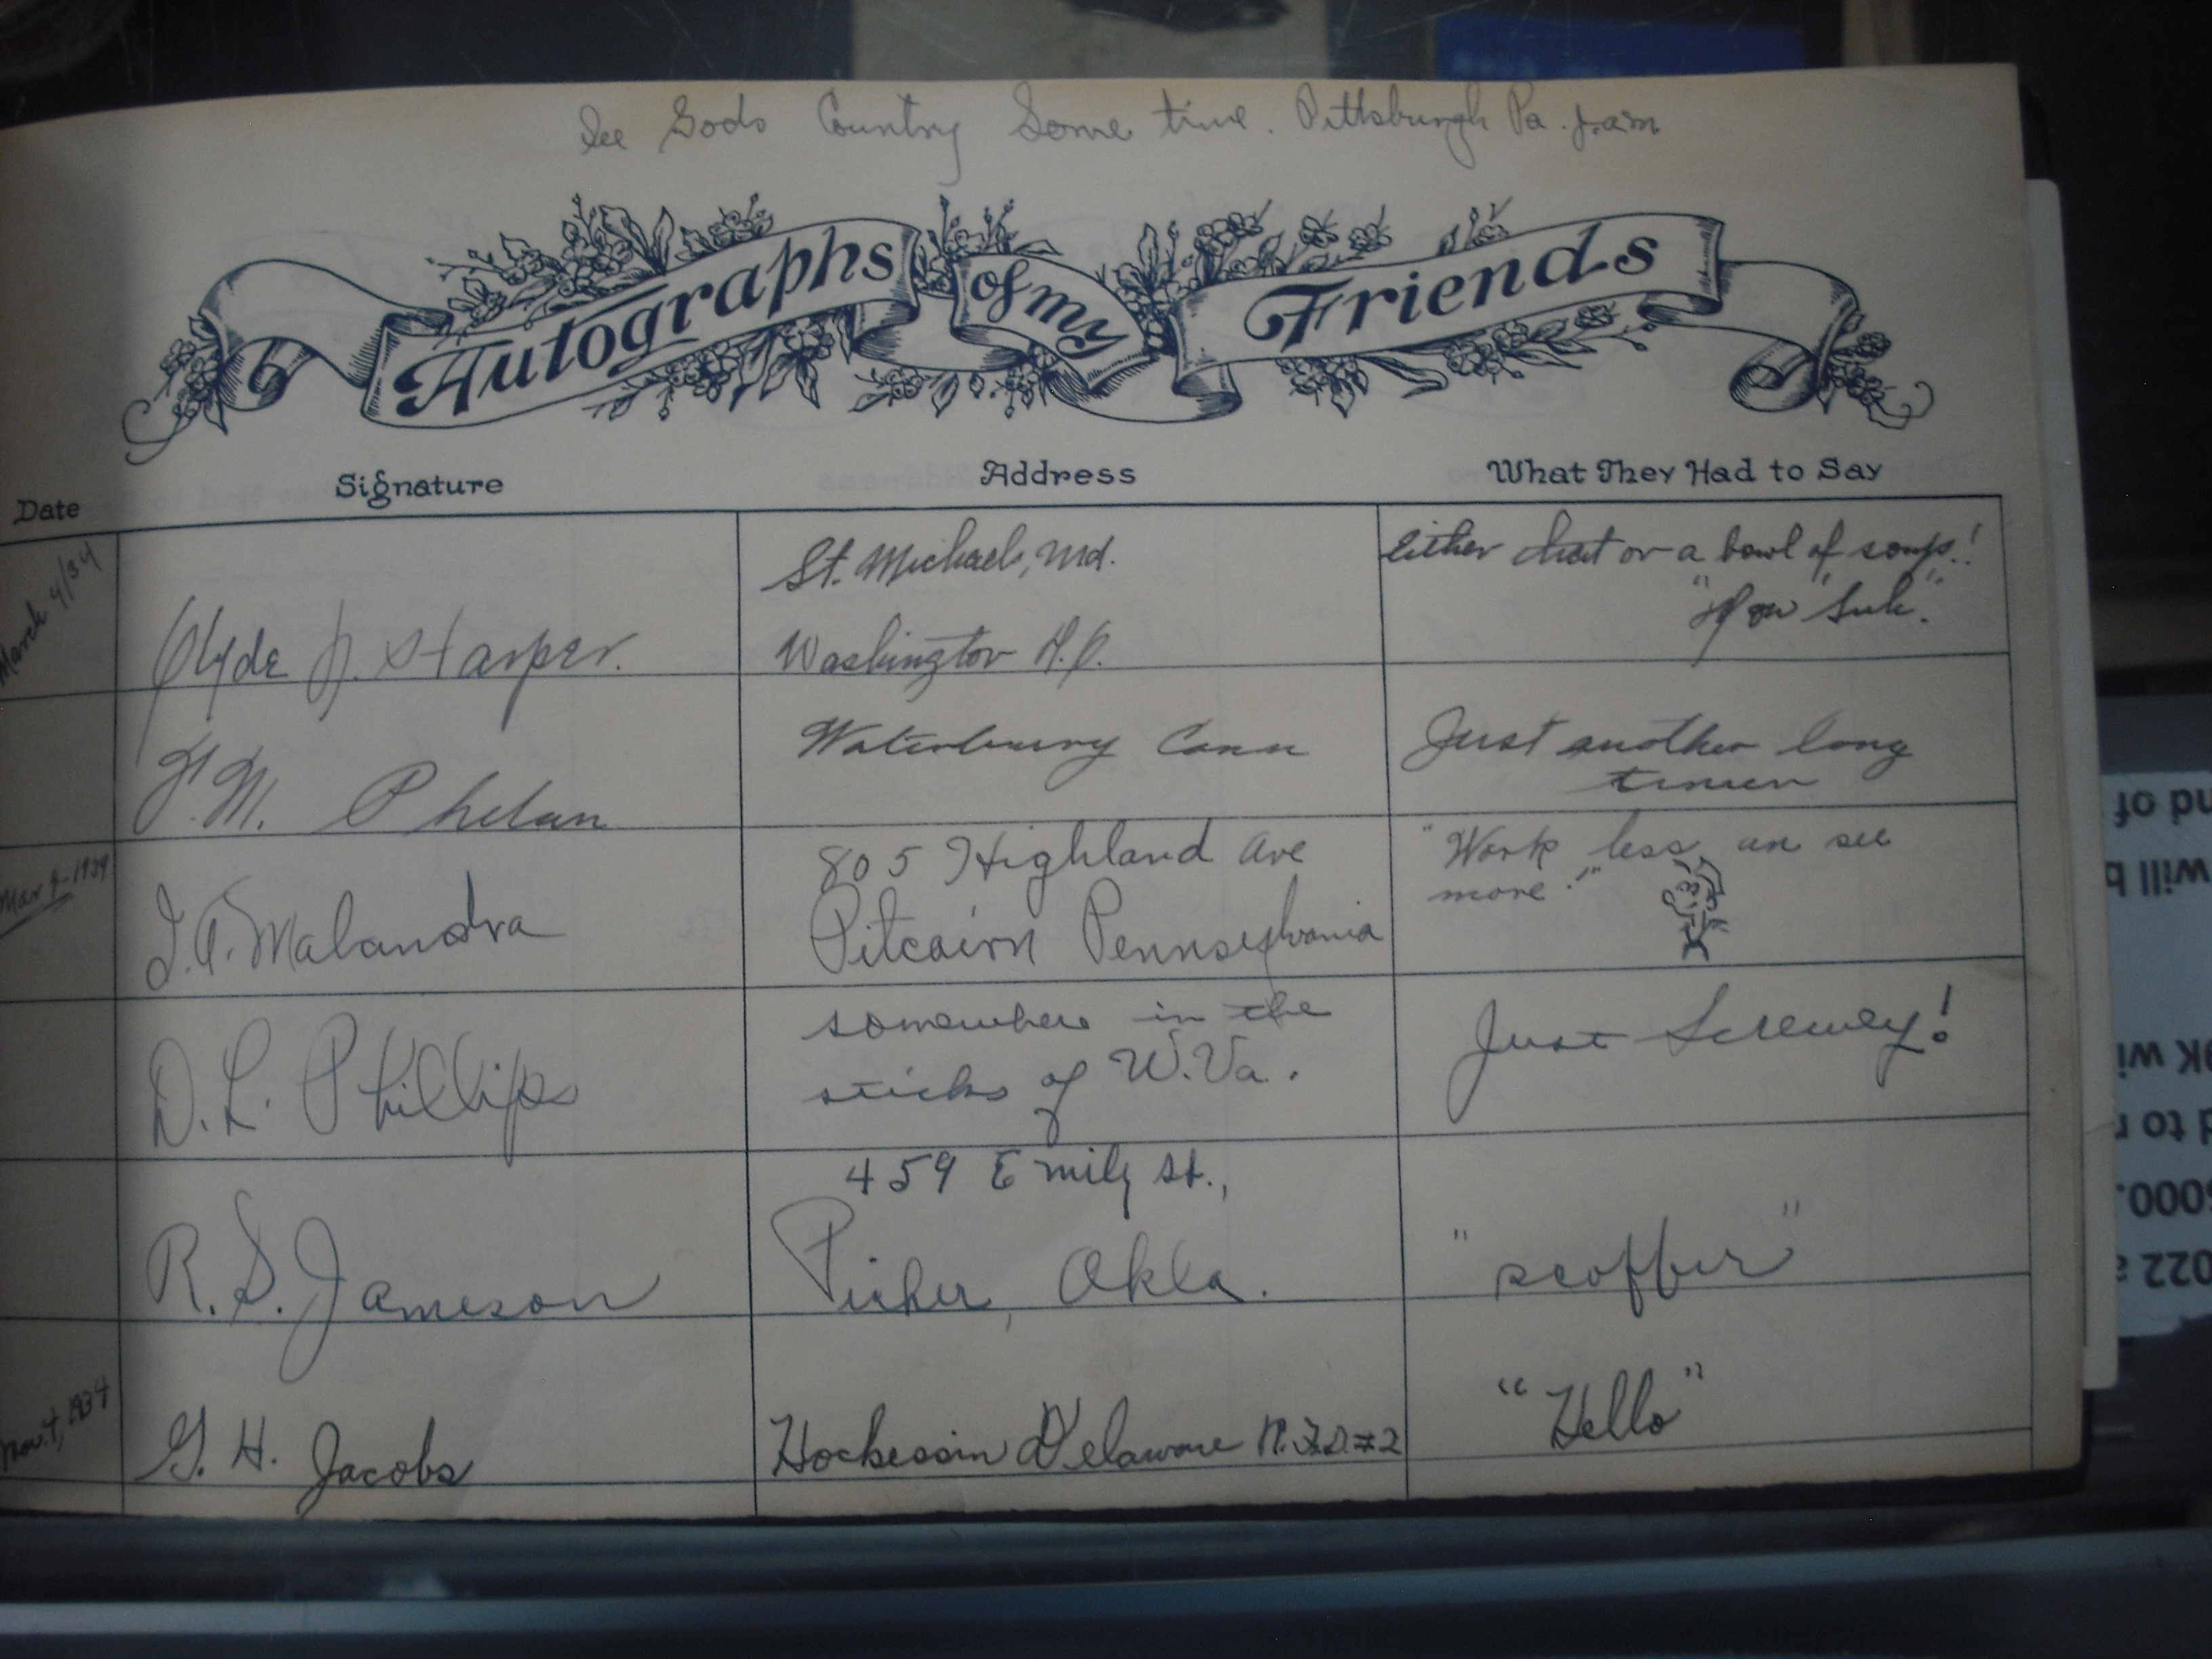 See Gods Country Some time. Pittsburgh Pa.
Autographs of my Friends
Date Signature Address What They Had to Say
March 4/34 Clyde J. Harper. St. Michaels, Md. Either chat or a bowl of soup!
Washington D.C.
Phelan Waterbury Conn Just another long
timer
Mar 9-1934 J.A. Malandra 805 Highland Ave "Work less an see
Pitcairn Pennsylvania more!"
D. L. Phillips somewhere in the Just Screwey!
sticks of W.Va.
R. S. Jameson 459 Emily St., "scoffer"
Picher, Okla.
Nov. 4, 1934 G. H. Jacobs Hockessin Delaware R.F.D. #2 "Hello"
nd of
will b
OK wi
d to
000.
022 a